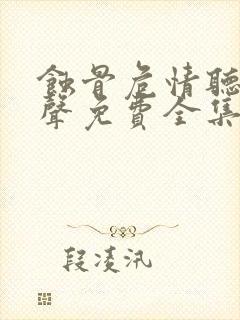 蝕骨危情聽
聲免費全集
段凌汛